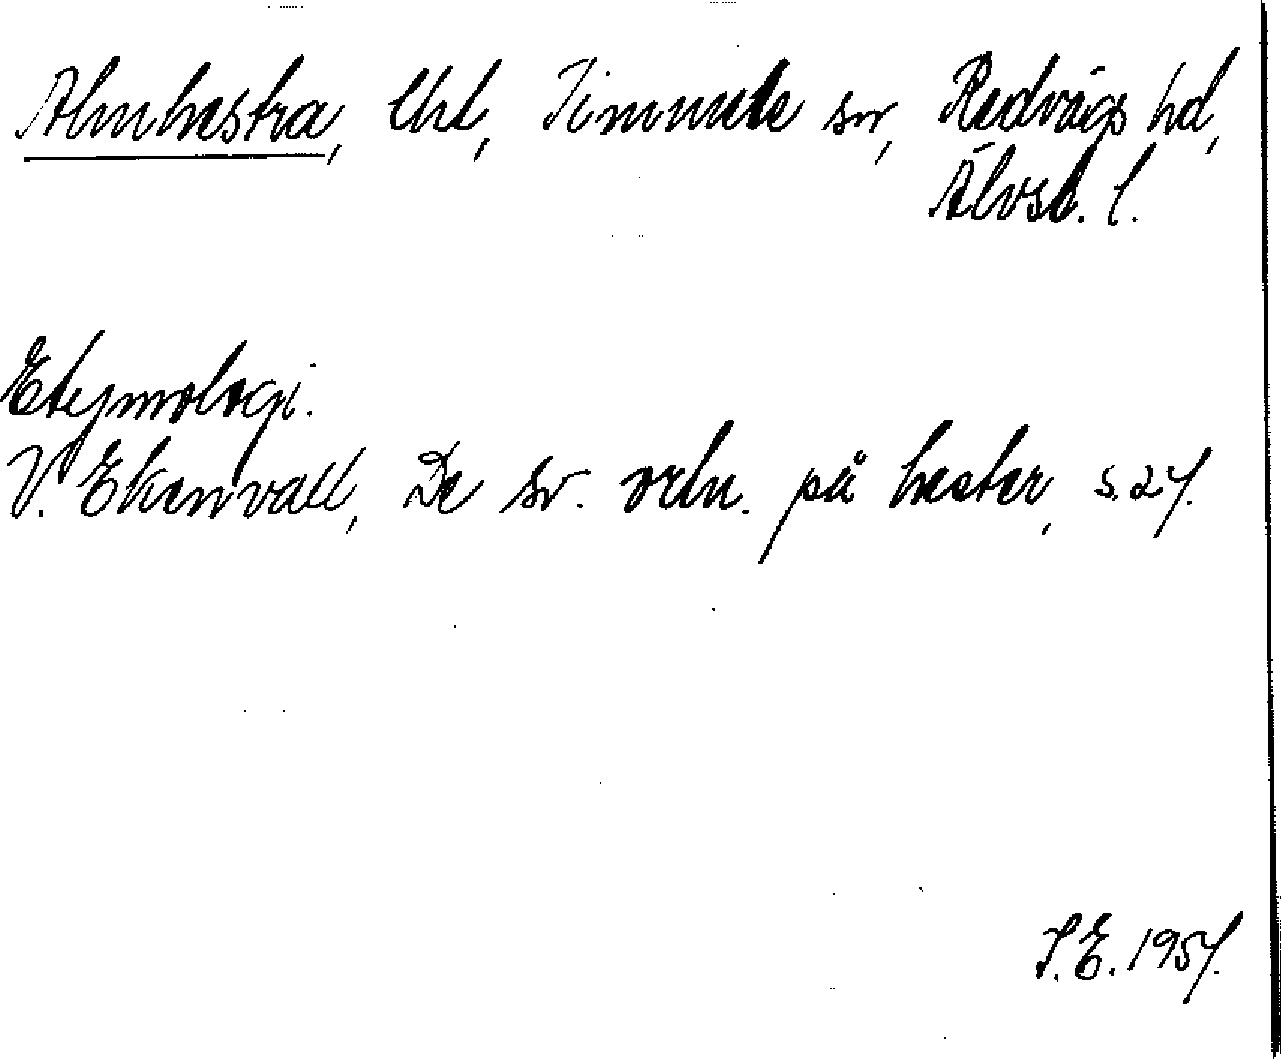 Almhestra, lht, Timmele sn, Redvägs hd,
Älvsb. l.
Etymologi.
V. Ekenvall, De sv. ortn. på hester, s. 27.
S. E. 1957.